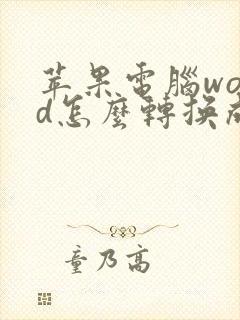 蘋果電腦wo
d怎麼轉換成
童乃高